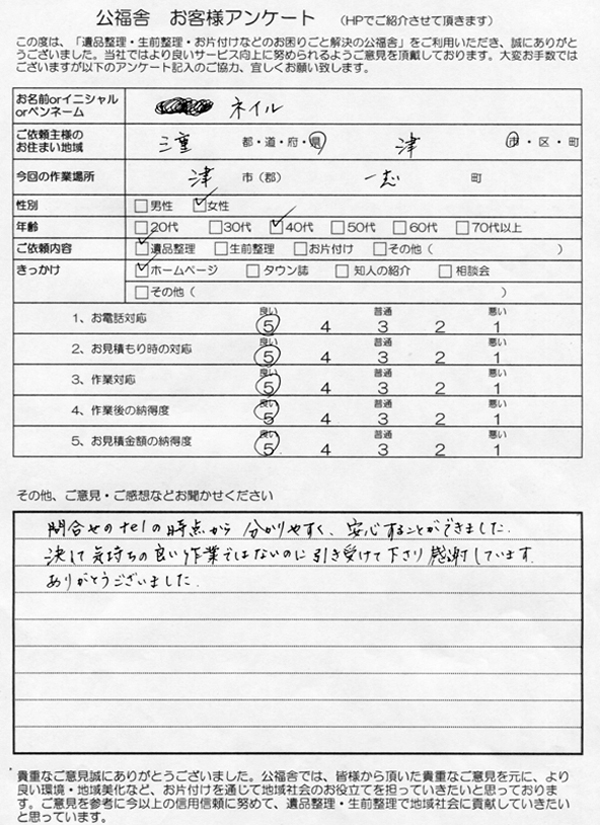 公福舎 お客様アンケート （HPでご紹介させて頂きます）
この度は、「遺品整理・生前整理・お片付けなどのお困りごと解決の公福舎」をご利用いただき、誠にありがと
うございました。当社ではより良いサービス向上に努められるようご意見を頂戴しております。大変お手数では
ございますが以下のアンケート記入のご協力、宜しくお願い致します。
お名前orイニシャル
orペンネーム ネイル
ご依頼主様の
お住まい地域 三重 都・道・府・県 津 市・区・町
今回の作業場所 津 市（郡） 一志 町
性別 男性 女性
年齢 20代 30代 40代 50代 60代 70代以上
ご依頼内容 遺品整理 生前整理 お片付け その他（ ）
きっかけ ホームページ タウン誌 知人の紹介 相談会
その他（ ）
良い 普通 悪い
1、お電話対応 5 4 3 2 1
良い 普通 悪い
2、お見積もり時の対応 5 4 3 2 1
良い 普通 悪い
3、作業対応 5 4 3 2 1
良い 普通 悪い
4、作業後の納得度 5 4 3 2 1
良い 普通 悪い
5、お見積金額の納得度 5 4 3 2 1
その他、ご意見・ご感想などお聞かせください
問合せのtelの時点から 分かりやすく、安心することができました.
決して気持ちの良い作業ではないのに引き受けて下さり感謝しています.
ありがとうございました.
貴重なご意見誠にありがとうございました。公福舎では、皆様から頂いた貴重なご意見を元に、より
良い環境・地域美化など、お片付けを通じて地域社会のお役立てを担っていきたいと思っておりま
す。ご意見を参考に今以上の信用信頼に努めて、遺品整理・生前整理で地域社会に貢献していきたい
と思っています。